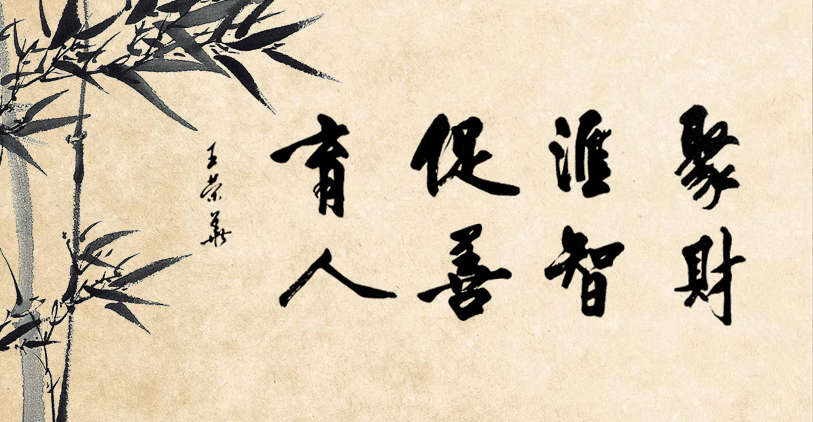 聚財
滙智
促善
育人
王荣華